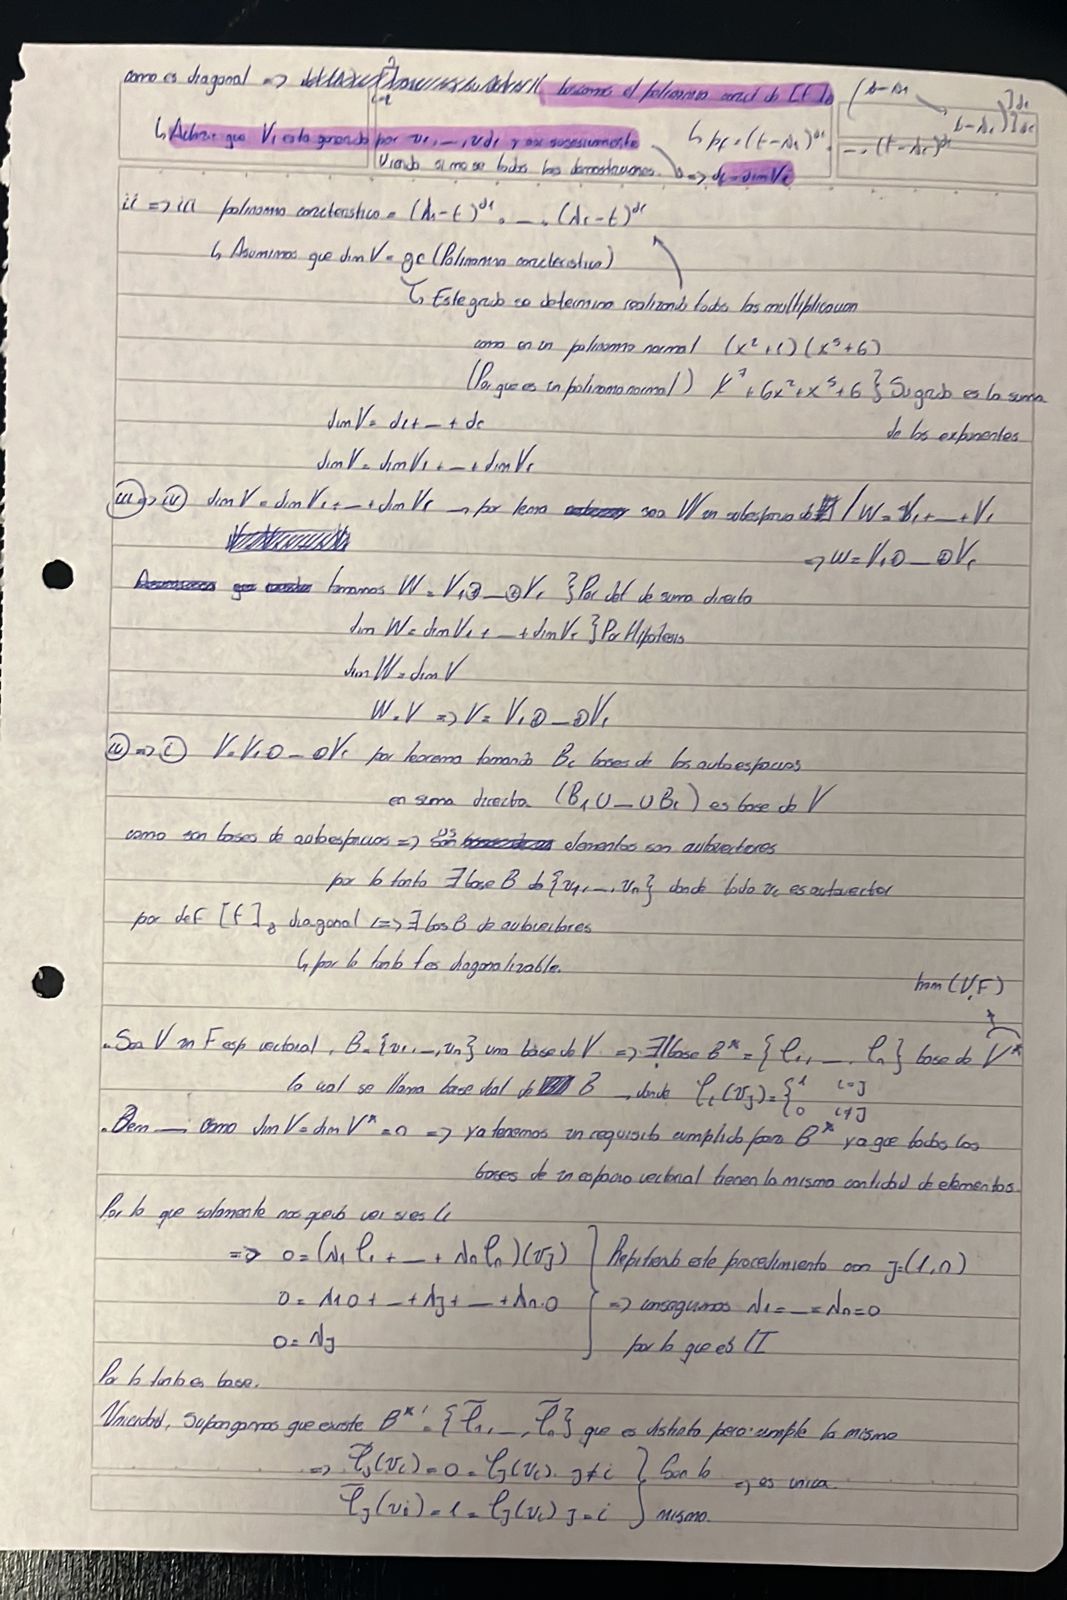 como es diagonal => buscamos el polinomio caract de [f]B (t-λ1
t-λr) }dr }d1
↳ Aclarar que V1 esta generado por v1, _, vd1 y asi sucesivamente ↳ pf = (t-λ1)^d1 . _ . (t-λr)^dr
Viendo si no se todas las demostraciones. => di = dimVi
ii => iii polinomio caracteristico = (λ1-t)^d1 . _ . (λr-t)^dr
↳ Asumimos que dim V = gr (Polinomio caracteristico)
↳ Este grado se determina realizando todas las multiplicacion
como en un polinomio normal (x²+1) (x⁵+6)
(Porque es un polinomio normal) x⁷ + 6x² + x⁵ + 6 } Su grado es la suma
de los exponentes
dim V = d1 + _ + dr
dim V = dim V1 + _ + dim Vr
iii => iv dim V = dim V1 + _ + dim Vr → por tema sea W un subespacio de / W = V1 + _ + Vr
=> W = V1 ⊕ _ ⊕ Vr
tomamos W = V1 ⊕ _ ⊕ Vr } Por def de suma directa
dim W = dim V1 + _ + dim Vr } Por Hipotesis
dim W = dim V
W = V => V = V1 ⊕ _ ⊕ Vr
iv => i V = V1 ⊕ _ ⊕ Vr por teorema tomando Bi bases de los autoespacios
en suma directa (B1 ∪ _ ∪ Br) es base de V
como son bases de autoespacios => us elementos son autovectores
por lo tanto ∃ base B de {v1, _, vn} donde todo vi es autovector
por def [f]B diagonal <=> ∃ bas B de autovectores
↳ por lo tanto f es diagonalizable.
hom (V,F)
. Sea V un F esp vectorial, B = {v1, _, vn} una base de V => ∃! base B* = {φ1, _, φn} base de V*
la cual se llama base dual de B → donde φi(vj) = {1 i=j
0 i≠j
. Dem _ como dim V = dim V* = n => ya tenemos un requisito cumplido para B* ya que todas las
bases de un espacio vectorial tienen la misma cantidad de elementos.
Por lo que solamente nos queda ver si es li
=> 0 = (λ1 φ1 + _ + λn φn)(vj) } Repitiendo este procedimiento con j=(1,n)
0 = λ1·0 + _ + λj + _ + λn·0 => conseguimos λ1 = _ = λn = 0
0 = λj por lo que es LI
Por lo tanto es base.
Unicidad, Supongamos que existe B*' = {φ̃1, _, φ̃n} que es distinto pero cumple lo mismo
=> φ̃j(vi) = 0 = φj(vi) j≠i } Son lo => es unica.
φ̃j(vi) = 1 = φj(vi) j=i mismo.